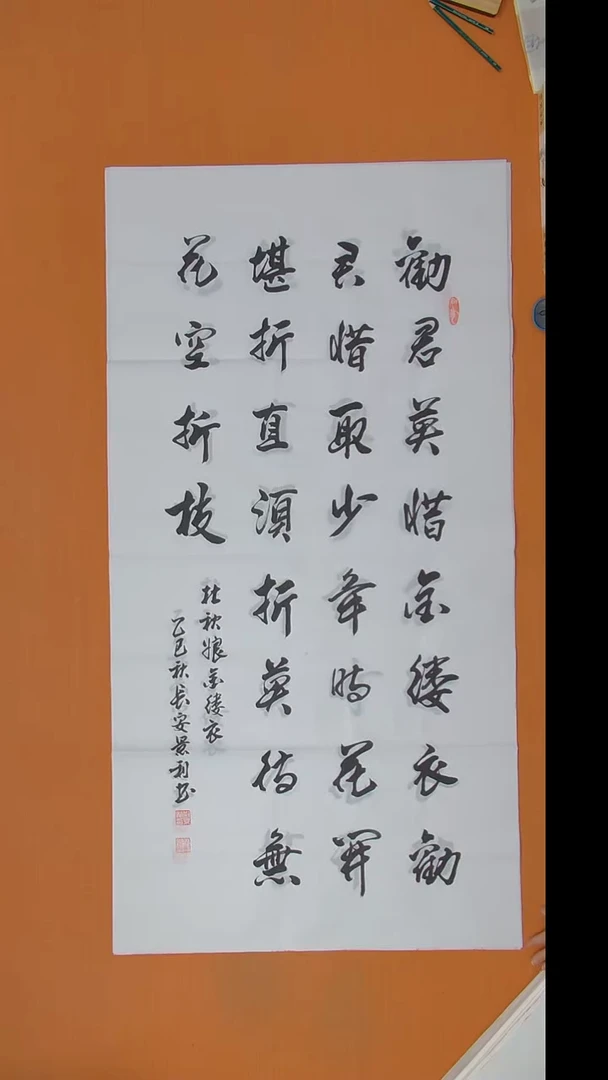 勸君莫惜金縷衣勸
君惜取少年時花開
堪折直須折莫待無
花空折枝
杜秋娘金縷衣
乙巳秋長安景利书